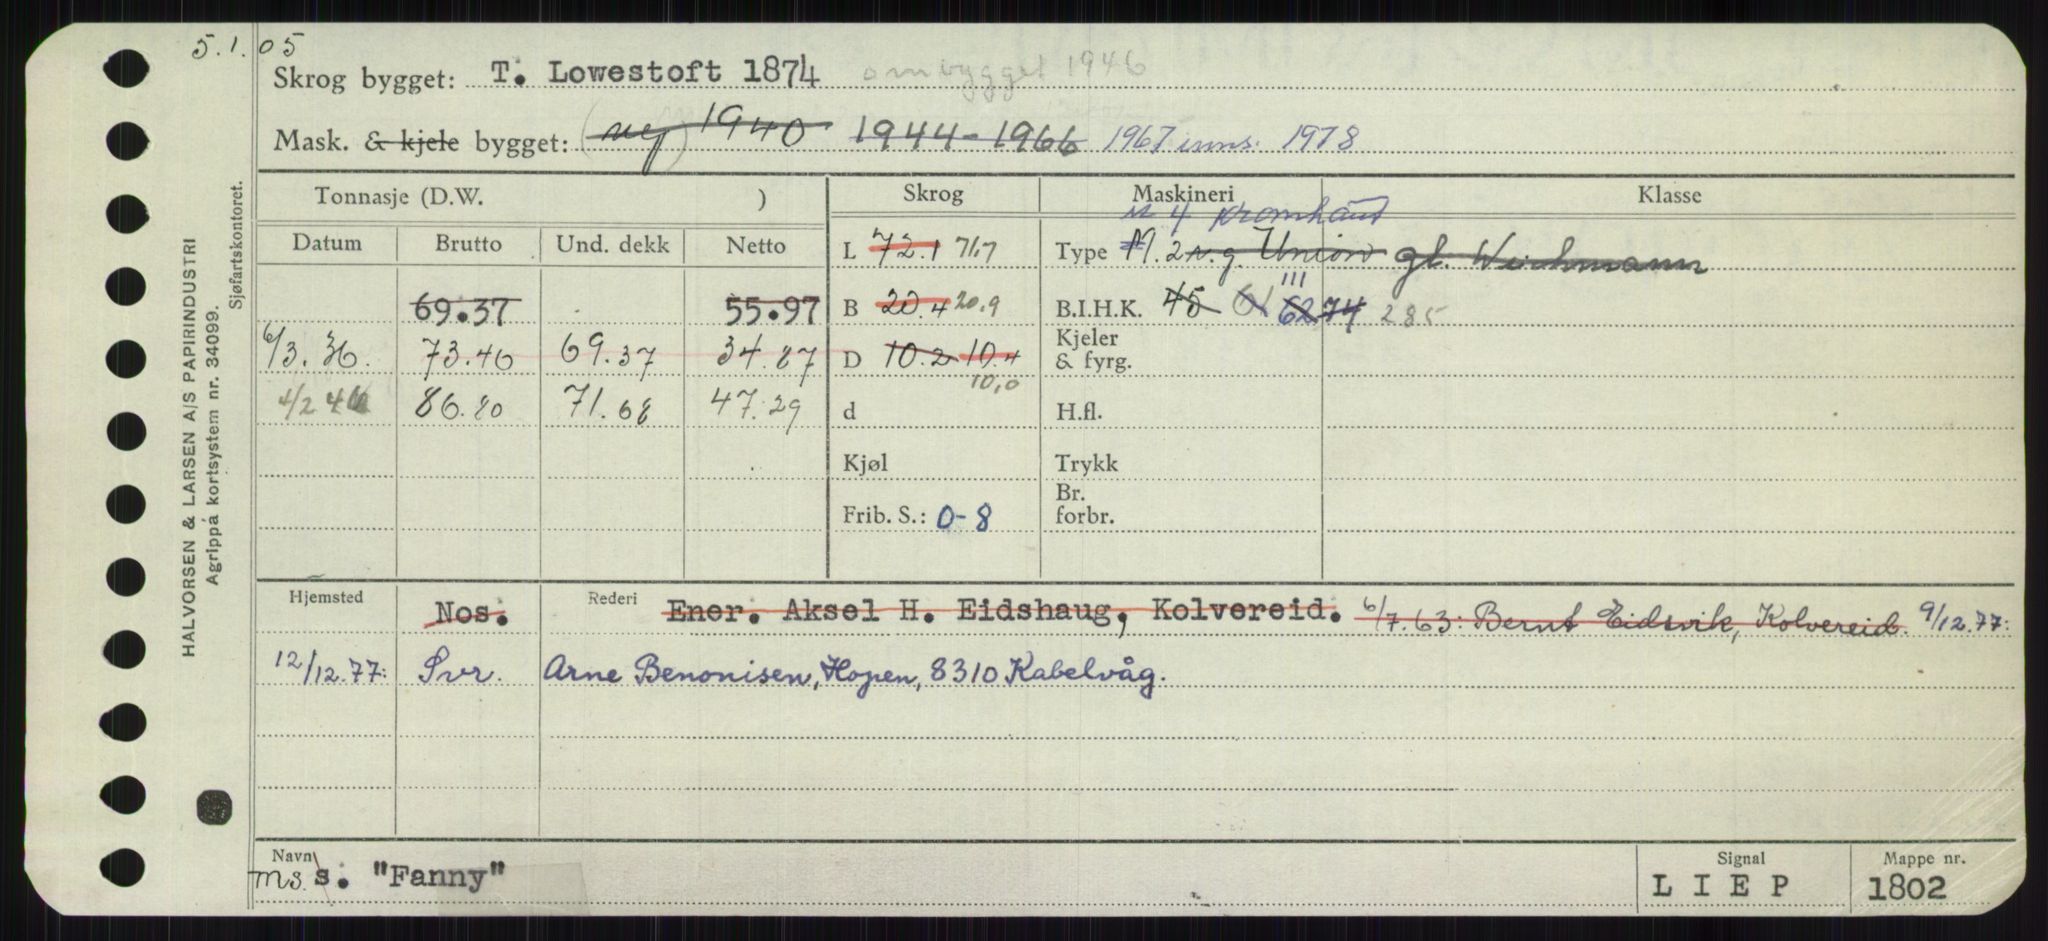 5.1.05
Skrog bygget: T. Lowestoft 1874 ombygget 1946
Mask. & kjele bygget: (ny) 1940 1944-1966 1967 inns. 1978
Tonnasje (D.W. ) Skrog Maskineri Klasse
M 4 Kromhaut
Datum Brutto Und. dekk Netto L 72.1 71,7 Type M. 2 v.g. Union gl. Wichmann
111
69.37 55.97 B 20.4 20.9 B.I.H.K. 45 61 62 74 285
6/3.36. 73.46 69.37 34.87 D 10.2 10.4 Kjeler & fyrg.
10,0
4/2 46 86.80 71.68 47.29 d H.fl.
Kjøl Trykk
Frib. S.: 0-8 Br. forbr.
Hjemsted Nos. Rederi Ener. Aksel H. Eidshaug, Kolvereid. 6/7.63: Bernt Eidsvik, Kolvereid. 9/12.77:
12/12.77: Svr. Arne Benonisen, Hopen, 8310 Kabelvåg.
Navn ms. s. "Fanny" Signal LIEP Mappe nr. 1802
HALVORSEN & LARSEN A/S PAPIRINDUSTRI
Agrippá kortsystem nr. 34099.
Sjøfartskontoret.